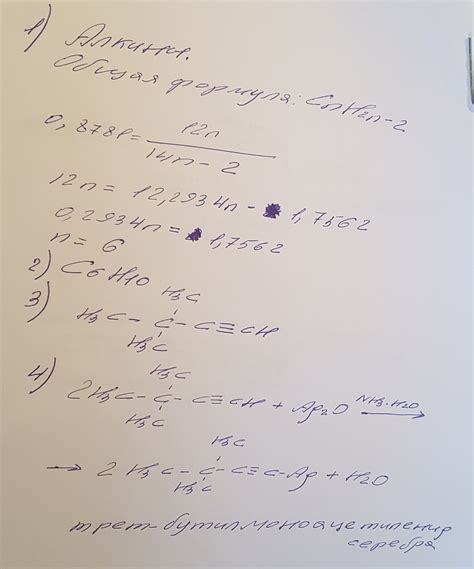 1) Алкины.
Общая формула: CnH2n-2
0,8781 = 12n / 14n - 2
12n = 12,2934n - 1,7562
0,2934n = 1,7562
n = 6
2) C6H10
3) H3C
H3C - C - C ≡ CH
H3C
4) H3C
2H3C - C - C ≡ CH + Ag2O NH3·H2O →
H3C
H3C
→ 2 H3C - C - C ≡ C - Ag + H2O
H3C
трет-бутилмоноацетиленид
серебра